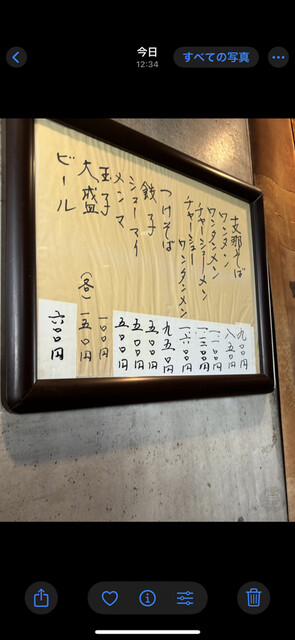 今日
12:34
すべての写真
支那そば 九〇〇円
ワンタン 八五〇円
ワンタンメン 一一〇〇円
チャーシューメン
チャーシューワンタンメン 一六〇〇円
つけそば 九五〇円
餃子 五〇〇円
シューマイ 五〇〇円
メンマ 五〇〇円
玉子 一〇〇円
大盛 (各) 一五〇円
ビール 六〇〇円